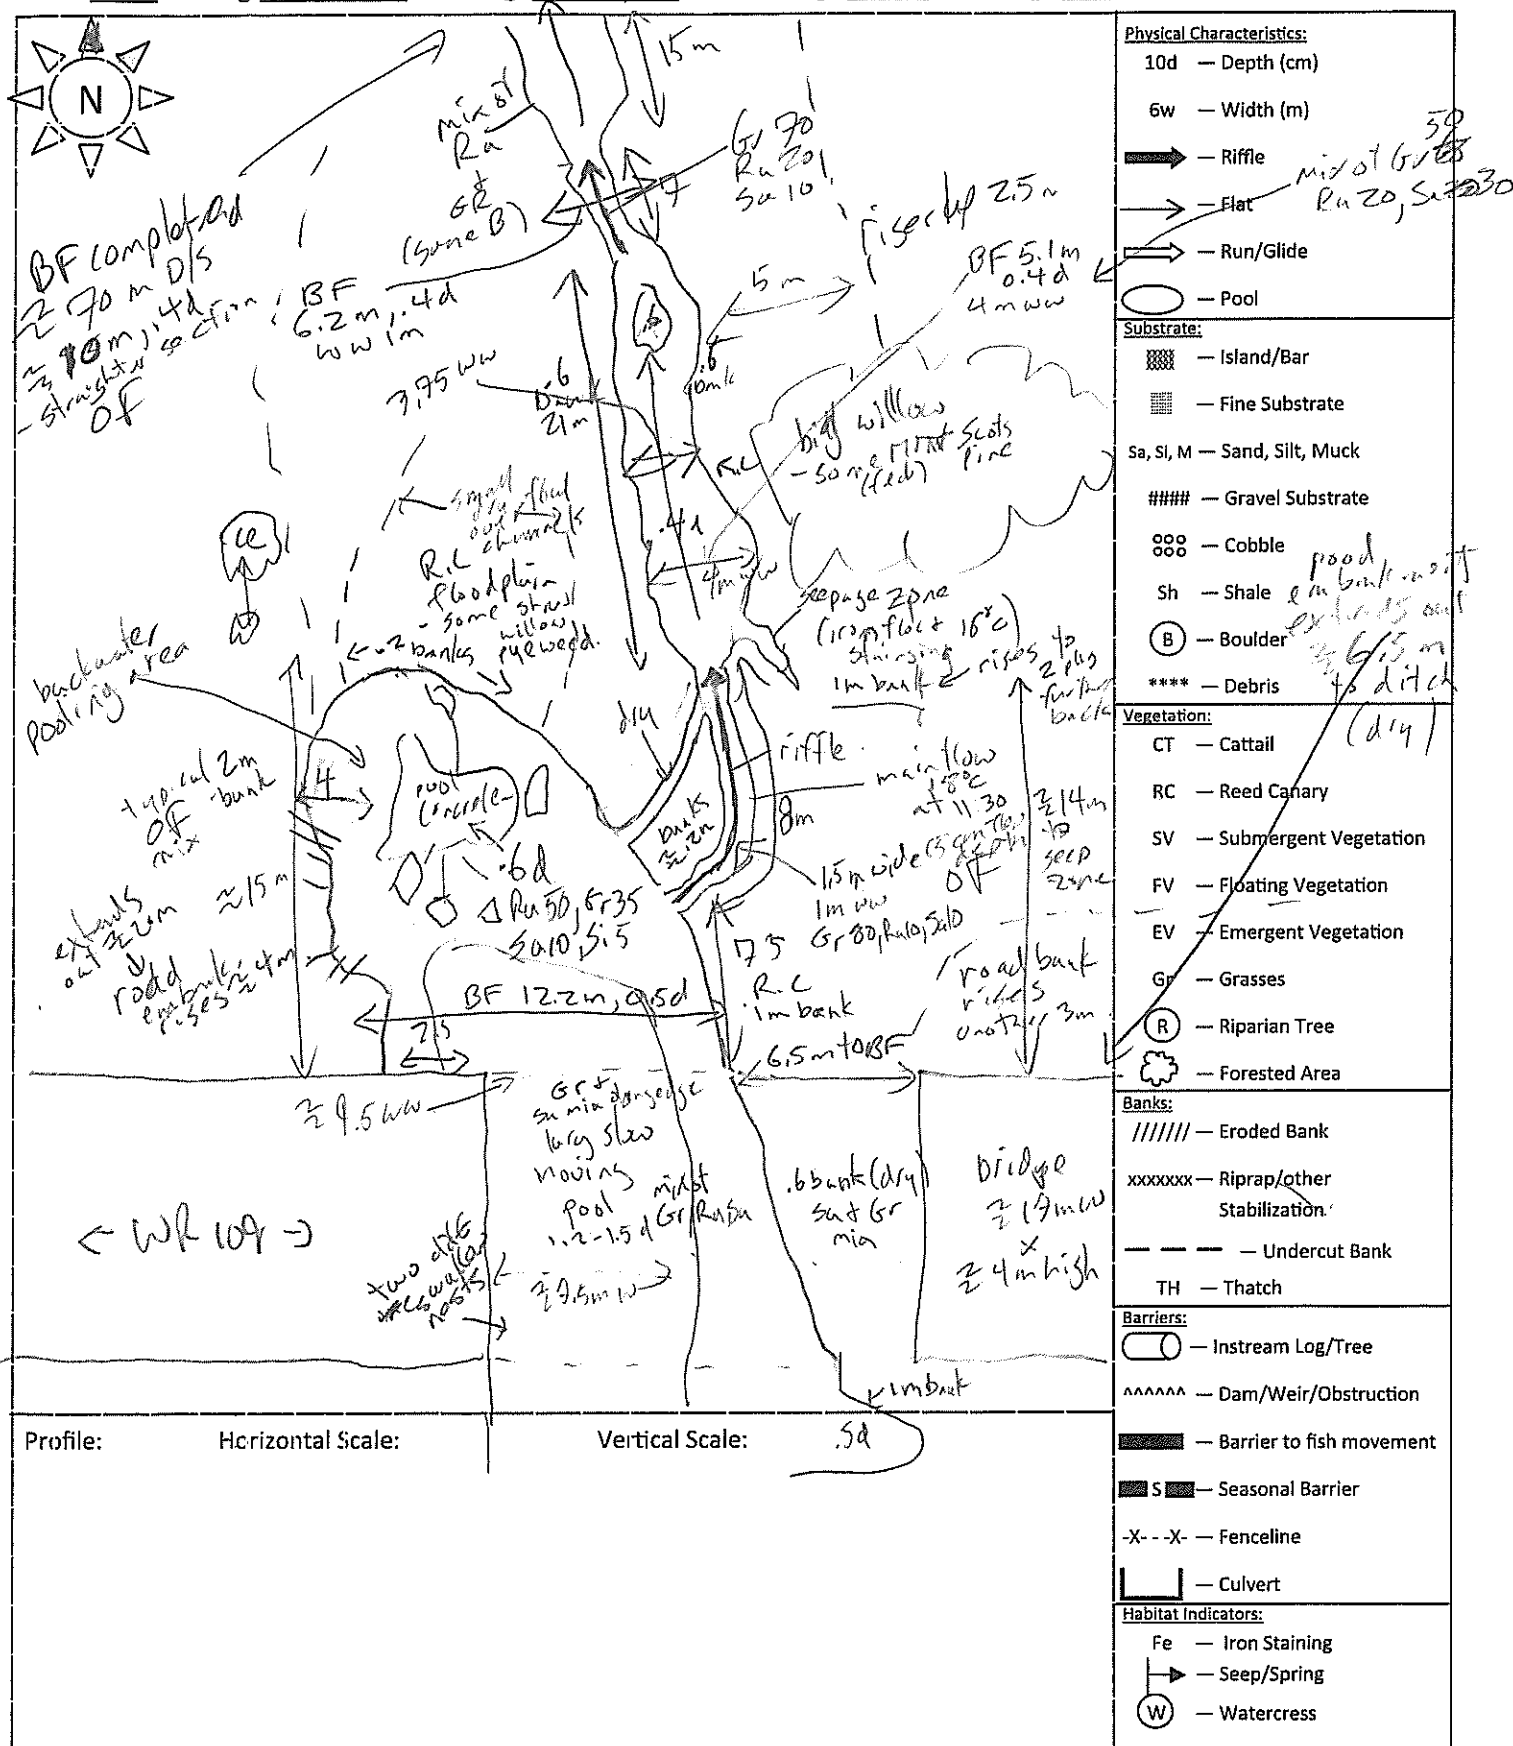 N
15m
mix of
Ra
&
GR
(some B)
Gr 70
Ru 20
Sa 10
7
BF completed
≈ 70 m D/S
≈ 10m, .4d
- straighter section
OF
BF
6.2m, .4d
ww 1m
3.75 ww
.6
bank
21m
5m
.6
bank
rises up 2.5m
BF 5.1m
0.4d
4mww
mix of Gr 50
Ru 20, Sa 30
big willow
- some Scots
Pine
R.C
small
channels
R.C
floodplain
- some shrub
willow
.2 banks
.4d
4mww
seepage zone
(iron floc & 16°C)
staining
1m bank
rises to
2 plus
further
back
ce
backwater
pooling area
dry
riffle
main flow
18°C
at 11:30
8m
≈14m
to
seep
zone
typical 2m
OF bank
mix
4
pool
concrete
banks
≈.2m
.6d
Ru 50, Gr 35
Sa 10, Si 5
1.5m wide
1m ww
OF
Gr 80, Ru10, Sa10
extends
out ≈20m
≈15m
road
embank.
rises ≈4m
7.5
R.C
1m bank
road bank
rises
another 3m
BF 12.2m, 0.5d
2.5
6.5m to BF
≈9.5ww
Gr &
Sa mix along edge
large slow
moving
pool
1.2-1.5d
mix of
Gr Ru Sa
.6 bank (dry)
Sa & Gr
mix
bridge
≈19mw
x
≈4m high
< WR 109 >
two
nests
≈9.5m w
1m bank
.5d
Profile: Horizontal Scale: Vertical Scale:
Physical Characteristics:
10d — Depth (cm)
6w — Width (m)
— Riffle
— Flat
— Run/Glide
— Pool
Substrate:
— Island/Bar
— Fine Substrate
Sa, Si, M — Sand, Silt, Muck
#### — Gravel Substrate
— Cobble
Sh — Shale
B — Boulder
**** — Debris
embankment
extends out
≈ 6.5 m
to ditch
(dry)
Vegetation:
CT — Cattail
RC — Reed Canary
SV — Submergent Vegetation
FV — Floating Vegetation
EV — Emergent Vegetation
Gr — Grasses
R — Riparian Tree
— Forested Area
Banks:
/////// — Eroded Bank
xxxxxxx — Riprap/other
Stabilization
— — — — Undercut Bank
TH — Thatch
Barriers:
— Instream Log/Tree
^^^^^^ — Dam/Weir/Obstruction
— Barrier to fish movement
S — Seasonal Barrier
-X- - -X- — Fenceline
— Culvert
Habitat Indicators:
Fe — Iron Staining
— Seep/Spring
W — Watercress